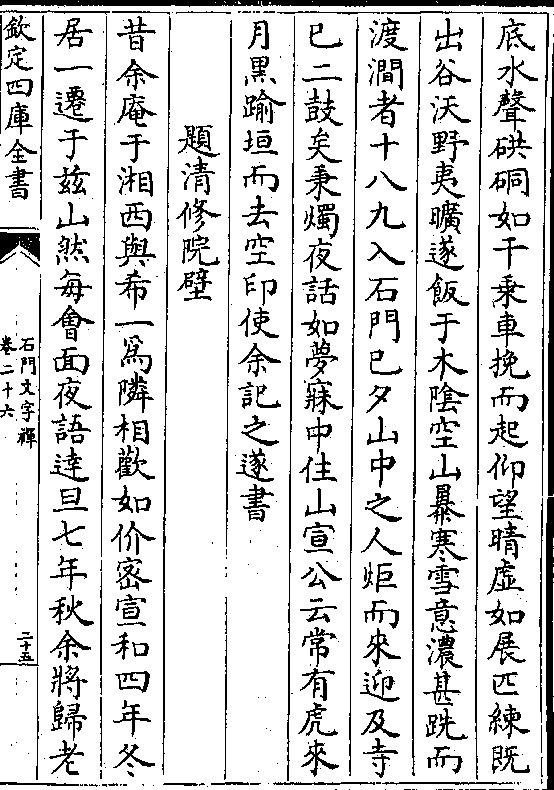 底水聲硔硐如千乗車挽而起仰望晴虛如展匹練既
出谷沃野夷曠遂飯于木陰空山暴寒雪意濃甚跣而
渡澗者十八九入石門已夕山中之人炬而來迎及寺
已二鼓矣秉燭夜話如夢寐中住山宣公云常有虎來
月黑踰垣而去空印使余記之遂書
題清修院壁
昔余庵于湘西與希一為隣相歡如价宻宣和四年冬
居一遷于兹山然每會面夜語達旦七年秋余將歸老
欽定四庫全書
石門文字禪
卷二十六
二十五